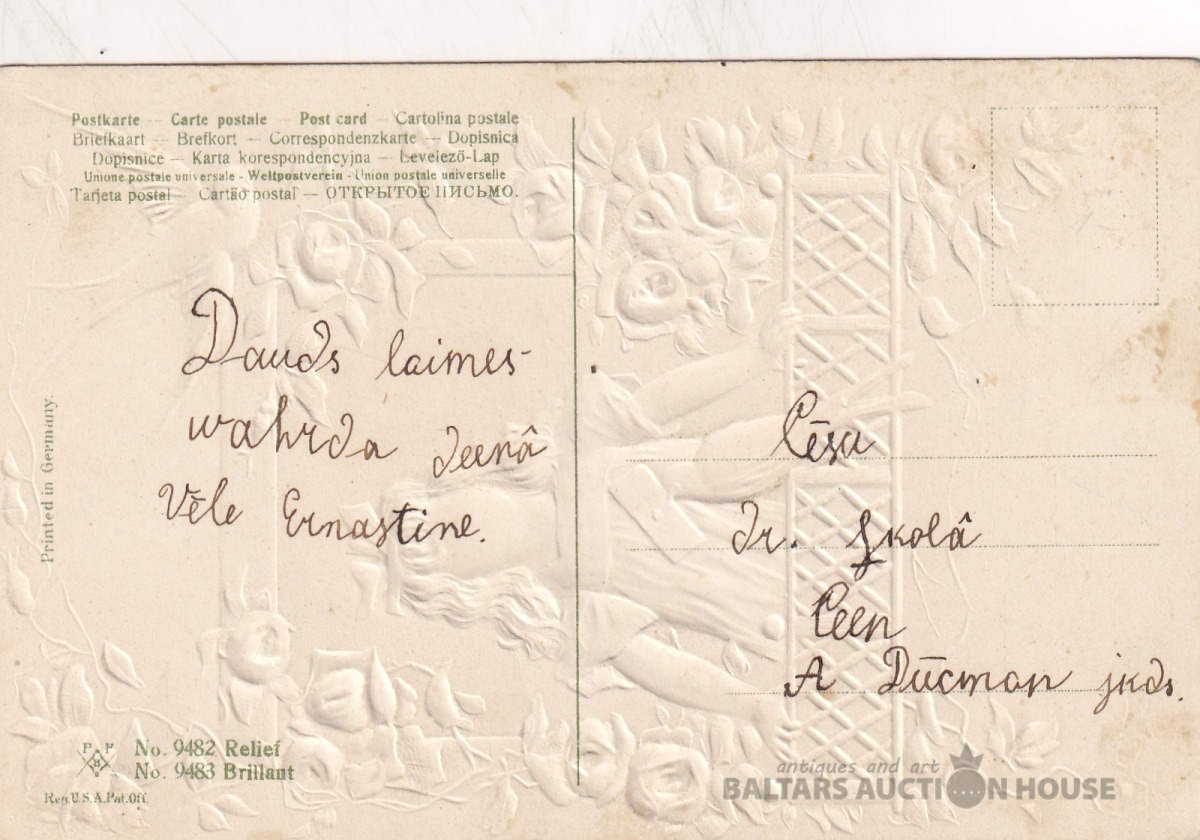 Postkarte — Carte postale — Post card — Cartolina postale
Briefkaart — Brefkort — Correspondenzkarte — Dopisnica
Dopisnice — Karta korespondencyjna — Levelező-Lap
Unione postale universale - Weltpostverein - Union postale universelle
Tarjeta postal — Cartão postal — ОТКРЫТОЕ ПИСЬМО.
Dauds laimes
wahrda deenâ
Vēle Ernastine.
Printed in Germany.
Cēsu
dr. skolâ
Ceen
A Dūcman jkds.
P P
No. 9482 Relief
No. 9483 Brillant
Reg. U.S.A. Pat. Off.
antiques and art
BALTARS AUCTION HOUSE